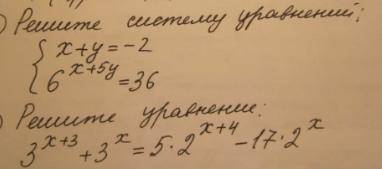 ) Решите систему уравнений:
{ x+y=-2
6^{x+5y}=36
) Решите уравнение:
3^{x+3}+3^{x}=5·2^{x+4}-17·2^{x}